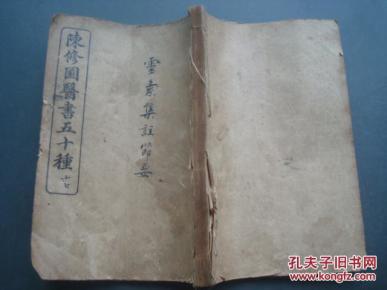 陳修園醫書五十種
靈素集註節要
孔夫子旧书网